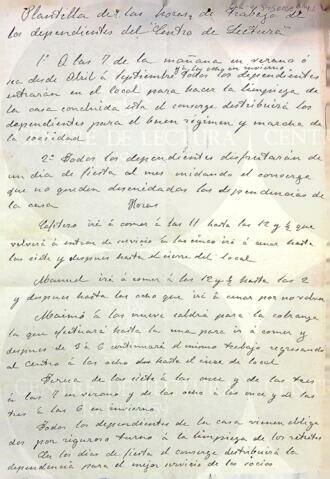 Plantilla de las horas de trabajo de
los dependientes del "Centro de Lectura"
1º A las 7 de la mañana en verano ó
sea desde Abril á Septiembre todos los dependientes
entrarán en el local para hacer la limpieza de
la casa concluida esta el conserge distribuirá los
dependientes para el buen régimen y marcha de
la sociedad
2º Todos los dependientes disfrutarán de
un dia de fiesta al mes cuidando el conserge
que no queden descuidadas las dependencias de
la casa
Horas
Cafetero irá á comer á las 11 hasta las 12 y ½ que
volverá á entrar de servicio á las cinco irá á cenar hasta
las siete y despues hasta el cierre del local
Manuel irá á comer á las 12 y ½ hasta las 2
y despues hasta las ocho que irá á cenar por no volver
á las nueve saldrá para la cobranza
la que efectuará hasta la una para ir á comer y
despues de 3 á 6 continuará el mismo trabajo regresando
al Centro á las ocho hasta el cierre de local
de las siete á las once y de las tres
á las 7 en verano y de las ocho á las once y de las
tres á las 6 en invierno
Todos los dependientes de la casa vienen obliga
dos por riguroso turno á la limpieza de los retretes
En los dias de fiesta el conserge distribuirá la
dependencia para el mejor servicio de los socios